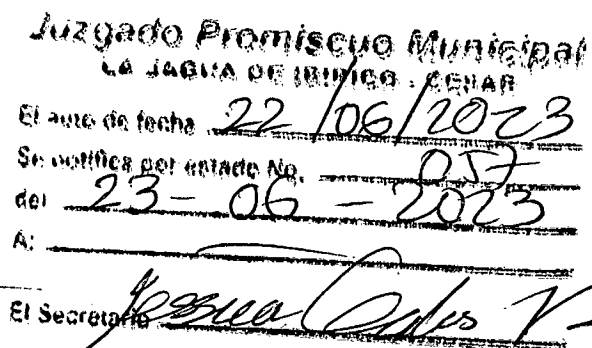 Juzgado Promiscuo Municipal
LA JAGUA DE IBIRICO - CESAR
El auto de fecha 22/06/2023
Se notifica por estado No. 057
del 23-06-2023
A:
El Secretario Jessica